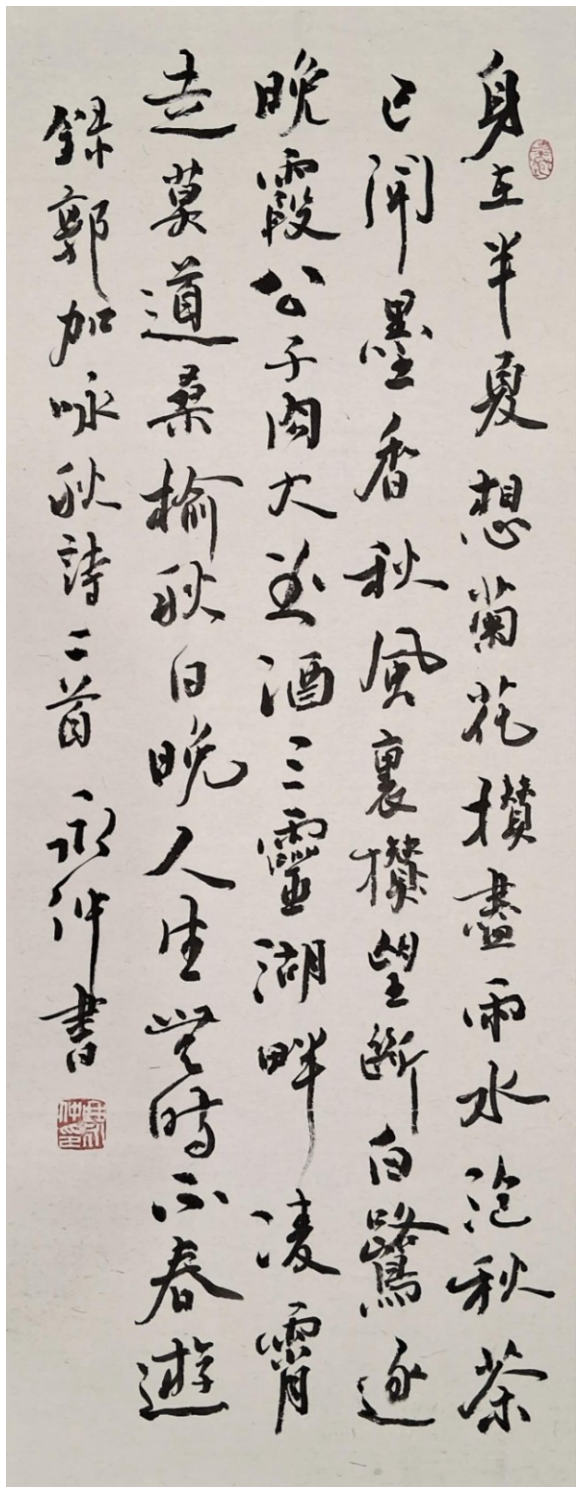 身在半夏想菊花攢盡雨水泡秋茶
已聞墨香秋風裏攢望斷白鷺逐
晚霞公子肉大酒三靈湖畔凌霄
走莫道桑榆秋日晚人生無時不春遊
錄郭加咏秋詩二首 永仲書